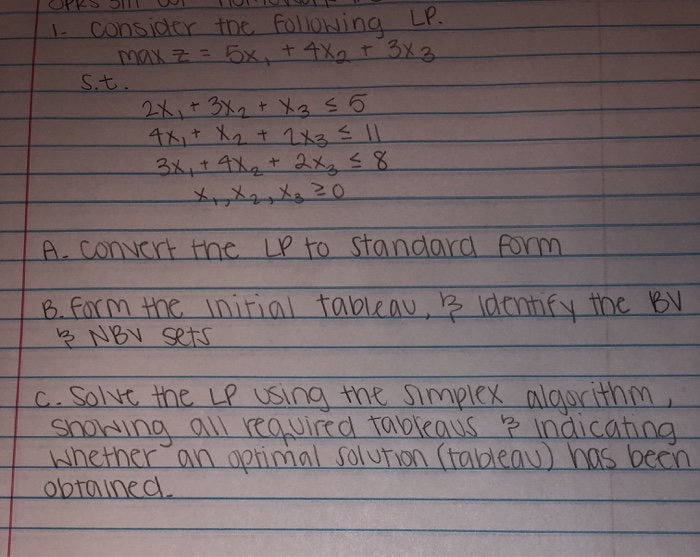 1. Consider the following LP.
max z = 5x₁ + 4x₂ + 3x₃
s.t.
2x₁ + 3x₂ + x₃ ≤ 5
4x₁ + x₂ + 2x₃ ≤ 11
3x₁ + 4x₂ + 2x₃ ≤ 8
x₁, x₂, x₃ ≥ 0
A. Convert the LP to standard form
B. Form the initial tableau, & identify the BV
& NBV sets
C. Solve the LP using the simplex algorithm,
showing all required tableaus & indicating
whether an optimal solution (tableau) has been
obtained.